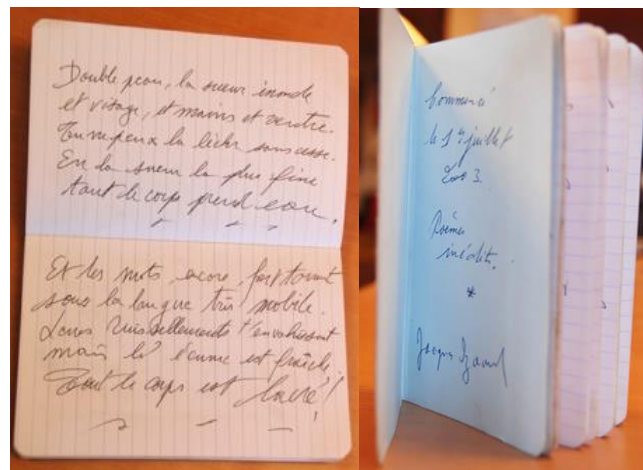 Double peau, la sueur inonde
et visage, et mains et ventre.
Tu ne peux la lécher sans cesse.
En la sueur la plus fine
tout le corps prend eau.
Et les mots, encore, font
sous la langue très mobile.
Leurs ruissellements t'envahissent
mais l'écume est fraîche.
Tout le corps est lacté !
Commencé
le 1er juillet
2003
Poèmes
inédits.
*
Jacques